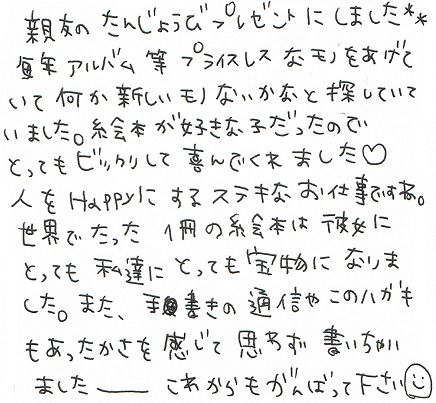 親友の たんじょうびプレゼントにしました**
毎年 アルバム 等 プライスレス なモノをあげて
いて 何か新しいモノないかなと探していて
いました。絵本が好きな子だったので
とってもビックリして 喜んでくれました♡
人を Happyにするステキなお仕事ですね。
世界でたった 1冊の絵本は 彼女に
とっても 私達に とっても宝物になりま
した。また、手書きの通信やこのハガキ
もあったかさを感じて 思わず 書いちゃい
ました―― これからもがんばって下さい☺